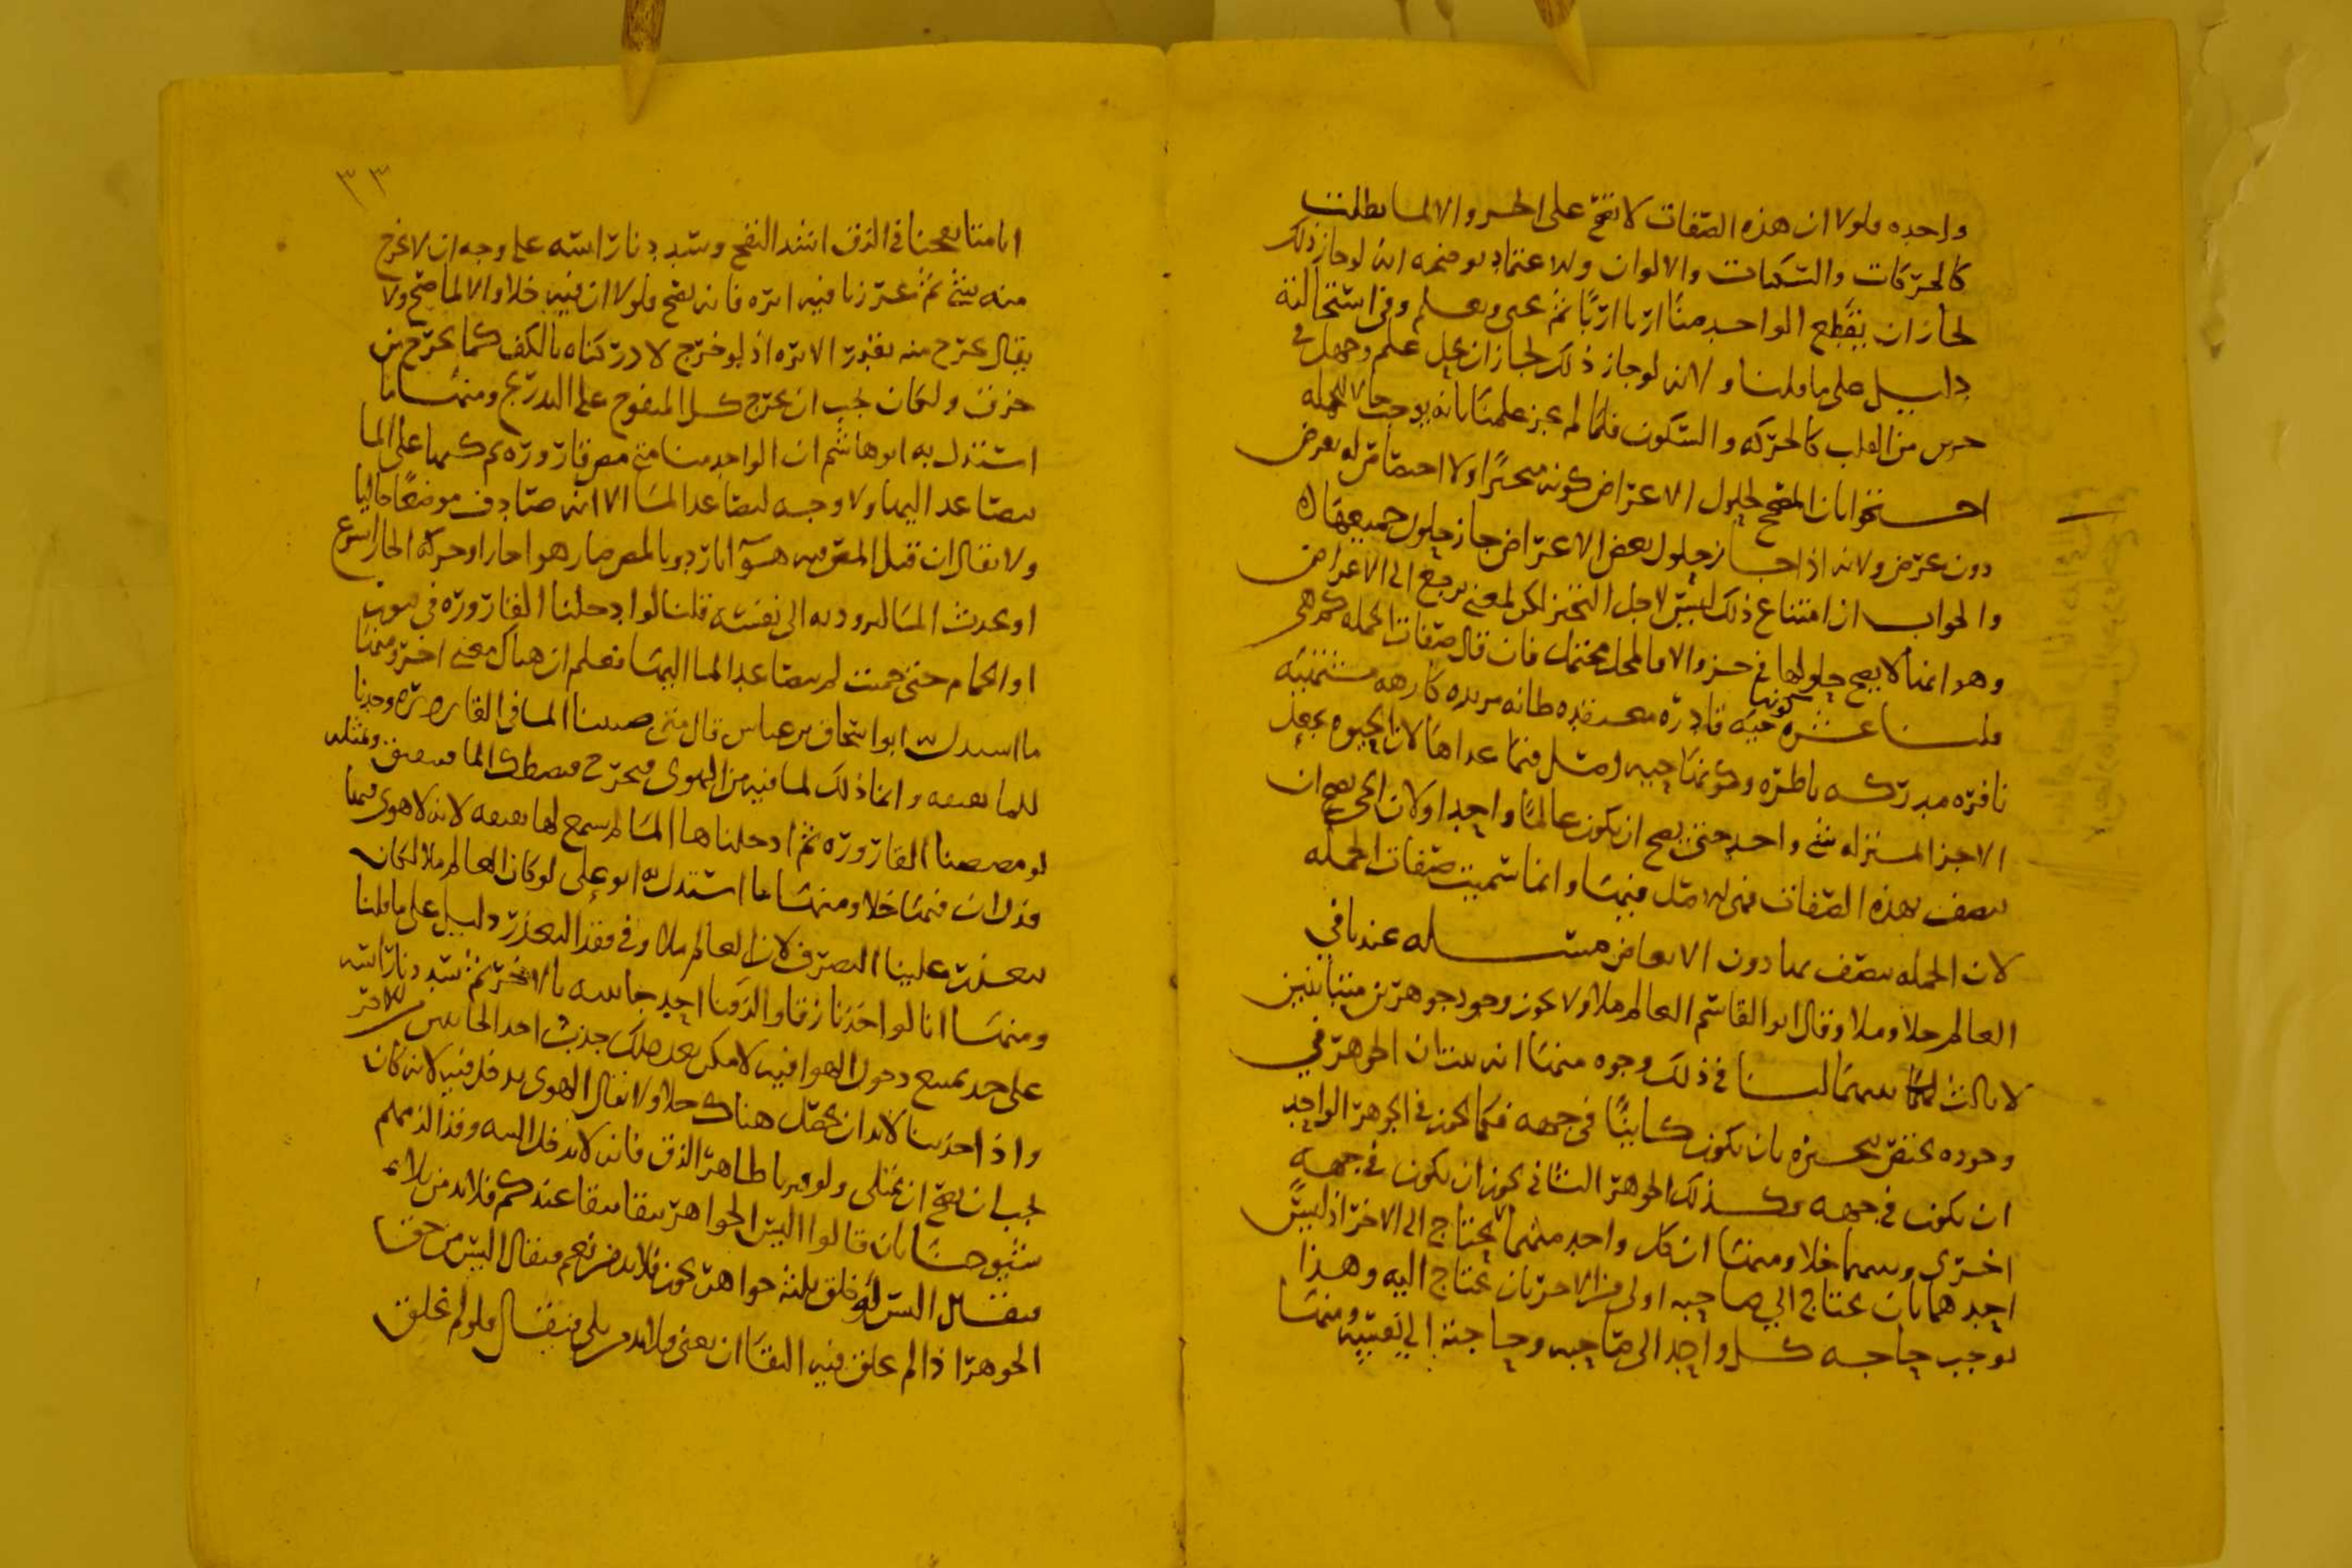 واحده ولولا ان هذه الصفات لا تصح على الجزء والا لما بطلت
كالحركات والسكنات والالوان والاعتماد يوضحه انه لو جاز ذلك
لجاز ان يقطع الواحد منا اربا اربا ثم يحيى ويعلم وفي استحالته
دليل على ما قلنا ولانه لو جاز ذلك لجاز ان يحل علم وجهل في
جزءين من القلب كالحركه والسكون فلما لم يجز علمنا بانه يوجب حالا للجمله
احتجوا بان المصحح لحلول الاعراض كونه متحيزا ولا اختصاص له بعرض
دون عرض ولانه اذا جاز حلول بعض الاعراض جاز حلول جميعها
والجواب ان امتناع ذلك ليس لاجل التحيز لكن لمعنى يرجع الى الاعراض
وهو انما لا يصح حلولها في جزء والا فالمحل محتمل فان قال صفات الجمله كم هي
قلنا عشره كونها حيه قادره معتقده ظانه مريده كارهه مشتهيه
نافره مدركه ناظره وكونها حيه اصل فيما عداها لان الحيوه تجعل
الاجزا بمنزله شي واحد حتى يصح ان يكون عالما واحدا ولان الحي يصح ان
يتصف بهذه الصفات فهي له اصل فيها وانما سميت صفات الجمله
لان الجمله تتصف بها دون الابعاض مسله عندنا في
العالم خلا وملا وقال ابو القاسم العالم ملا ولا يجوز وجود جوهرين متباينين
لا ثالث بينهما لنا في ذلك وجوه منها انه ثبت ان الجوهر في
وجوده يختص بتحيزه بان يكون كاينا في جهه فكما يجوز في الجوهر الواحد
ان يكون في جهه وكذلك الجوهر الثاني يجوز ان يكون في جهه
اخرى وبينهما خلا ومنها ان كل واحد منهما لا يحتاج الى الاخر اذ ليس
احدهما بان يحتاج الى صاحبه اولى من الاخر بان يحتاج اليه وهذا
يوجب حاجه كل واحد الى صاحبه وحاجته الى نفسه ومنها
٣٣
انا متى نفخنا في الزق اشد النفخ وشددنا راسه على وجه ان لا يخرج
منه شي ثم غرزنا فيه ابره فانه يصح فلولا ان فيه خلا والا لما صح ولا
يقال يخرج منه بقدر الابره اذ لو خرج لادركناه بالكف كما يخرج من
خرق ولكان يجب ان يخرج كل المنفوخ على التدريج ومنها ما
استدل به ابو هاشم ان الواحد منا متى مص قاروره ثم كبها على الما
يتصاعد اليها ولا وجه لتصاعد الما الا انه صادف موضعا خاليا
ولا يقال ان قبل المص فيه هوآ بارد وبالمص صار هوا حارا وحركه الحار اسرع
او يجذب الما لبرودته الى نفسه قلنا لو ادخلنا القاروره في
او الحمام حتى حميت لم يتصاعد الما اليها فعلم ان هناك معنى اخر ومنها
ما استدل به ابو اسحاق بن عياش قال متى صببنا الما في القاروره وجدنا
للما بعبعه وانما ذلك لما فيه من الهوى فيخرج فيصطك الما فيبعبق وبمثله
لو مصصنا القاروره ثم ادخلناها الما لم يسمع لها بعبعه لانه لا هوى فيها
فدل ان فيها خلا ومنها ما استدل به ابو علي لو كان العالم ملا لكان
يتعذر علينا التصرف لان العالم ملا وفي فقد التعذر دليل على ما قلنا
ومنها انا لو اخذنا زقا والزقنا احد جانبيه بالاخر ثم شددنا راسه
على حد يمنع دخول الهوا فيه لا مكن بعد ذلك جذب احد الجانبين من الاخر
واذا جذبنا لابد ان يحصل هناك خلا ولا يقال الهوى يدخل فيه لانه كان
يجب ان يصح ان يمتلى ولو قيرنا ظاهر الزق فانه لا يدخل اليه وقد الزمهم
شيوخنا بان قالوا اليس الجواهر تبقا ببقا عندكم فلابد من بلى
فيقال اليس لو خلق ثلثه جواهر يجوز فلابد من نعم فيقال اليس من حق
الجوهر اذا لم يخلق فيه البقا ان يفنى فلابد من بلى فيقال فلو لم يخلق